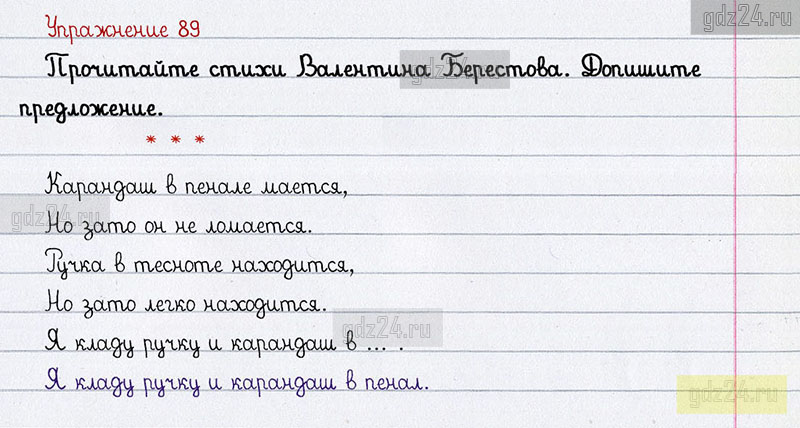 gdz24.ru
Упражнение 89
Прочитайте стихи Валентина Берестова. Допишите
gdz24.ru
предложение.
* * *
Карандаш в пенале мается,
gdz24.ru
Но зато он не ломается.
Ручка в тесноте находится,
Но зато легко находится.
gdz24.ru
Я кладу ручку и карандаш в ... .
Я кладу ручку и карандаш в пенал.
gdz24.ru